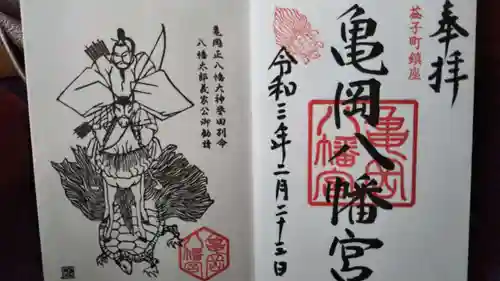 奉拝
益子町鎮座
亀岡八幡宮
亀岡八幡宮
令和三年二月二十三日
亀岡正八幡大神誉田別命
八幡太郎義家公御勧請
亀岡八幡宮